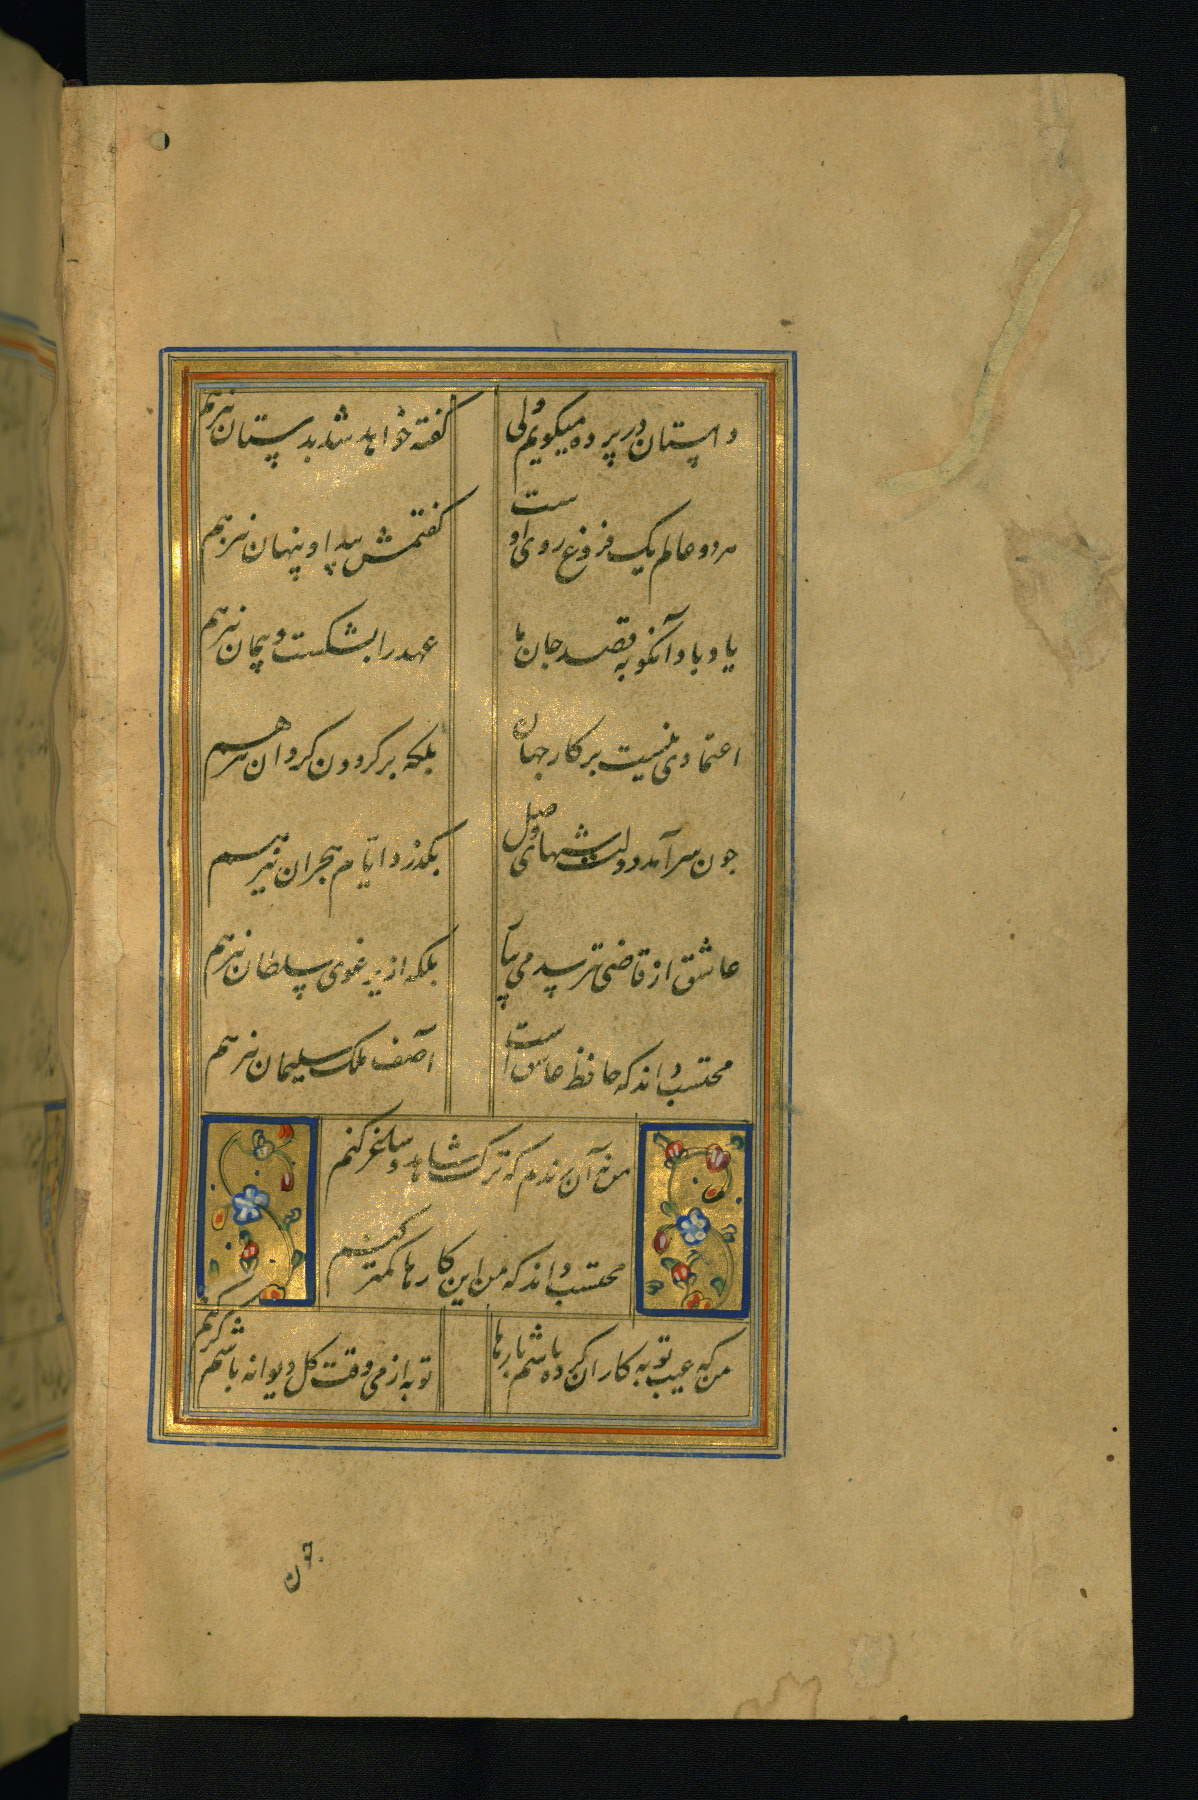 داستان در پرده میگویم ولی کفته خواهد شد بدستان نیز هم
هر دو عالم یک فروغ روی اوست کفتمش پیدا و پنهان نیز هم
یاد باد آنکو به قصد جان ما عهد را بشکست و پیمان نیز هم
اعتمادی نیست بر کار جهان بلکه بر کردون کردان نیز هم
چون سر آمد دولت شبهای وصل بکذرد ایام هجران نیز هم
عاشق از قاضی نترسد می بیا بلکه از یرغوی سلطان نیز هم
محتسب داند که حافظ عاشق است آصف ملک سلیمان نیز هم
من نه آن رندم که ترک شاهد و ساغر کنم
محتسب داند که من این کارها کمتر کنم
من که عیب توبه کاران کرده باشم بارها توبه از می وقت کل دیوانه باشم کر کنم